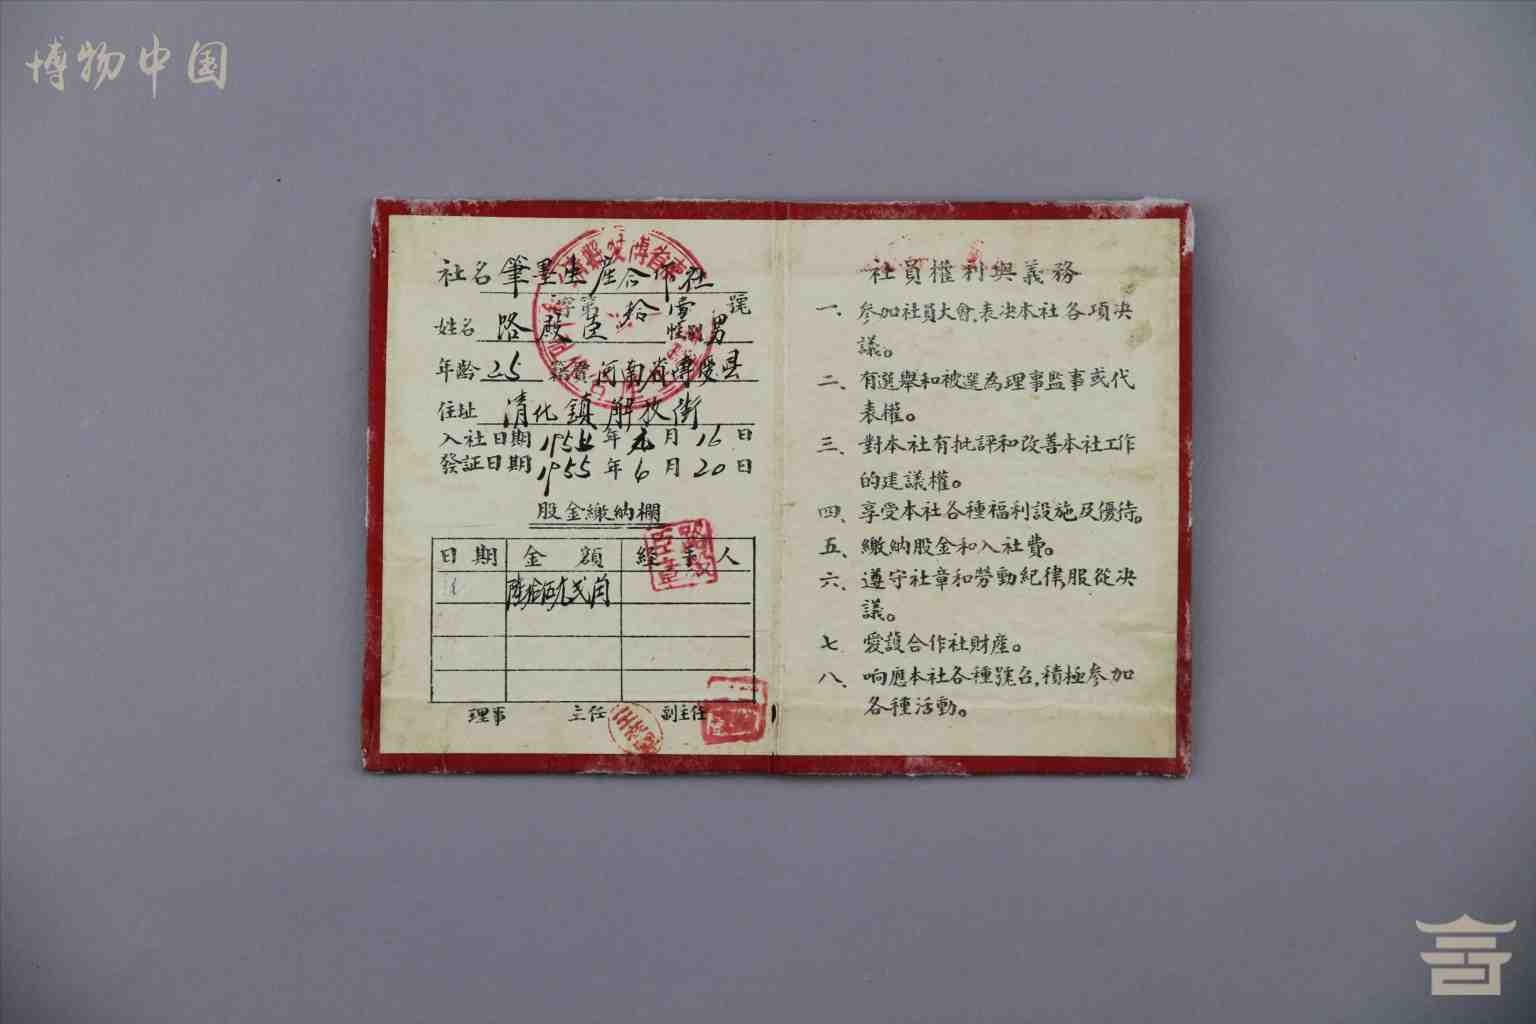 博物中国
社名 筆墨生產合作社
字第 拾壹 號
姓名 路殿臣 性別 男
年齡 25 籍貫 河南省博愛县
住址 清化鎮解放街
入社日期 195 年元月16日
發証日期 1955年6月20日
股金繳納欄
日期 金額 經手人
陸拾伍元弍角
路殿臣章
理事 主任 副主任
社員權利與義務
一、參加社員大會、表决本社各項决
議。
二、有選舉和被選為理事監事或代
表權。
三、對本社有批評和改善本社工作
的建議權。
四、享受本社各種福利設施及優待。
五、繳納股金和入社費。
六、遵守社章和勞動紀律,服從决
議。
七、愛護合作社財產。
八、响應本社各種號召,積極參加
各種活動。